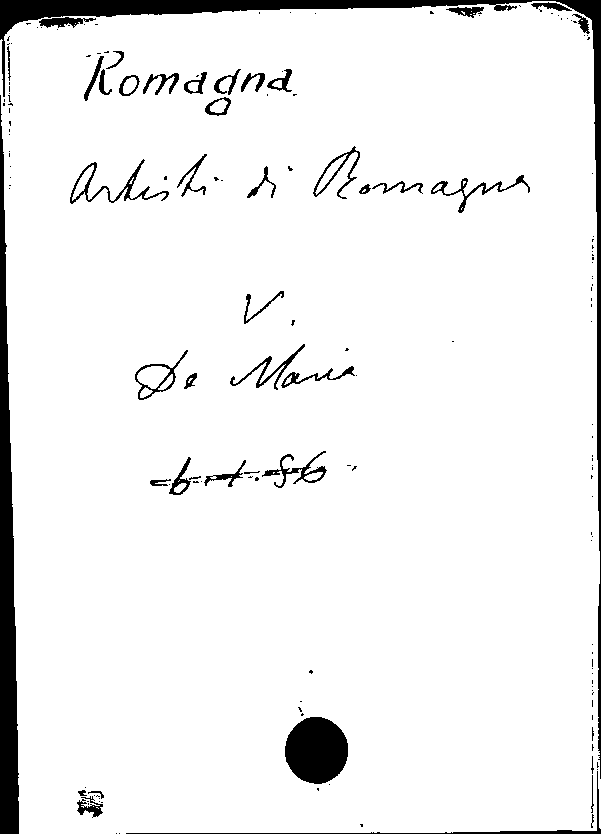 Romagna
Artisti di Romagna
V.
De Maria
b.1.86